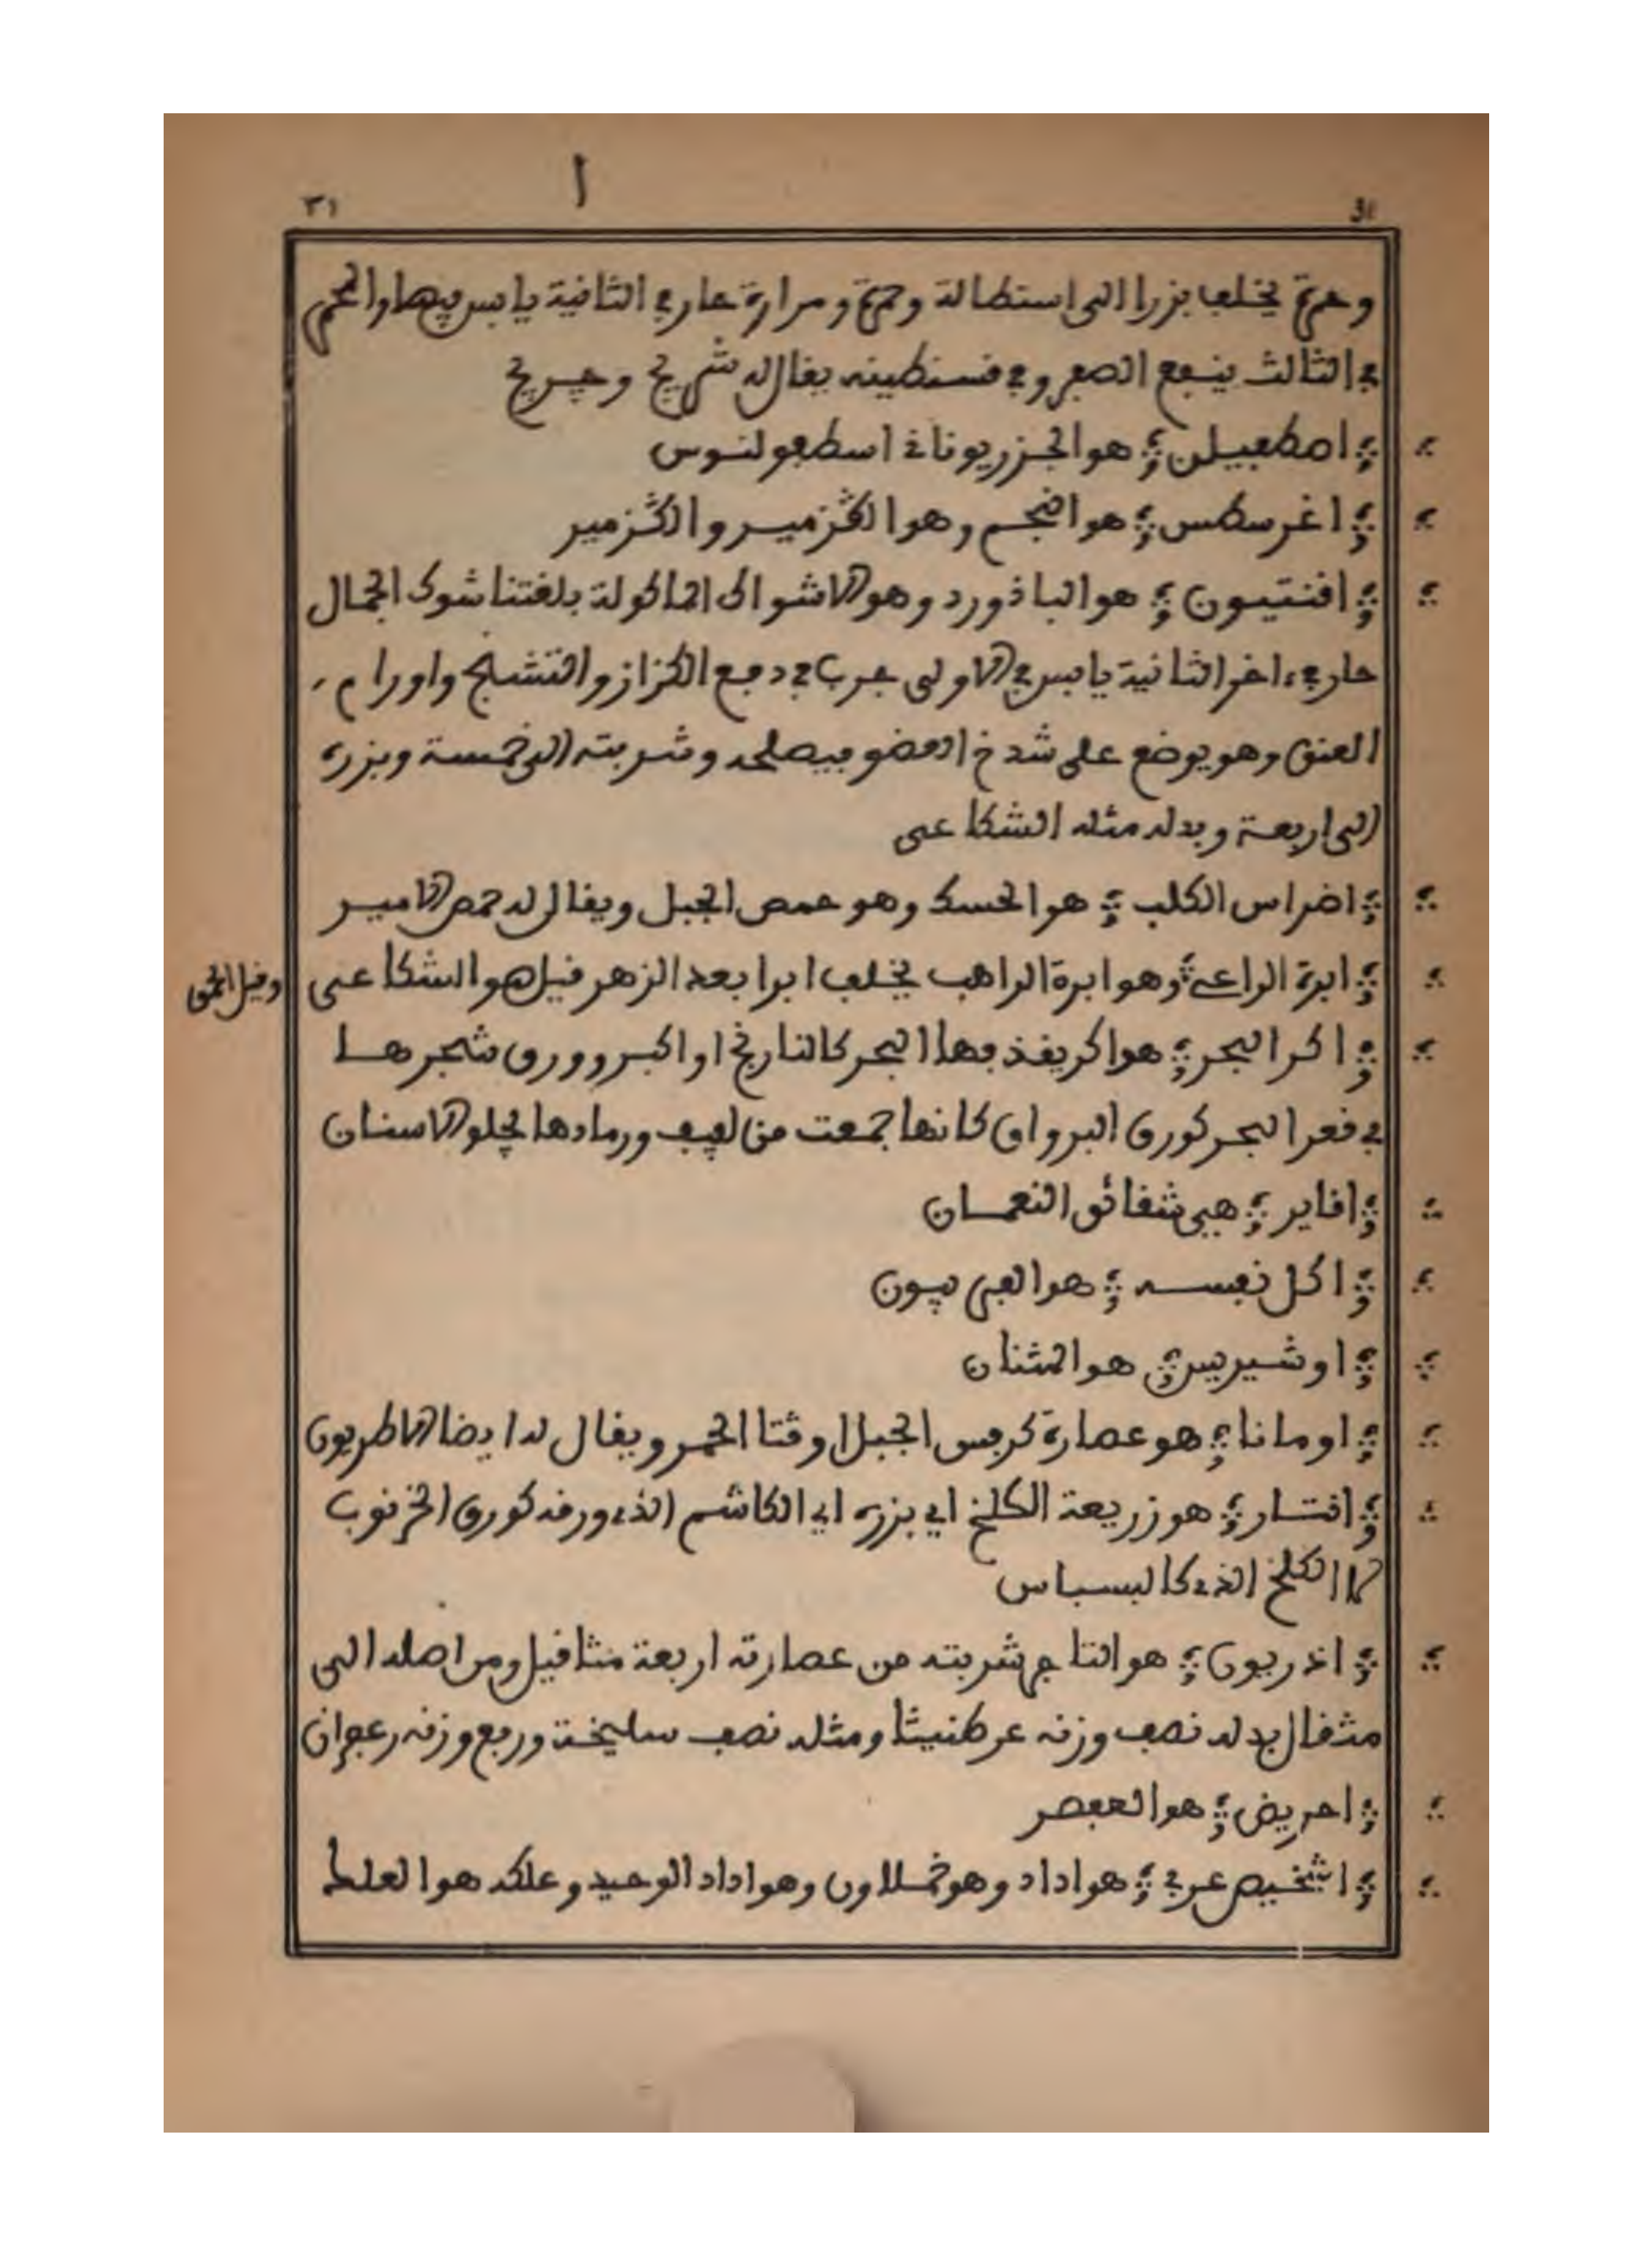 ٣١
ا
31
وحدة يخلف بزرا الى استطالة وحمرة ومرارة حار في الثانية يابس فيها او
في الثالث ينفع الصفر وفي قسنطينه يقال له شريح وحريح
اصطفيلن هو الجزر يوناني اسطفولنوس
اغرسطس هو النجم وهو الڭزمير والڭزمير
اقنتيون هو الباذورد وهو الاشواك الماكولة بلغتنا شوك الجمال
حار في ءاخر الثانية يابس في الاولى جرب في دفع الكزاز والتشنج واورام
العنق وهو يوضع على شدخ العضو فيصلحه وشربته الى خمسة وبزره
الى اربعة وبدله مثله الشكاعى
اضراس الكلب هو الحسك وهو حمص الجبل ويقال له حمص الامير
ابرة الراعي وهو ابرة الراهب يخلف ابرا بعد الزهر قيل هو الشكاعى
وقيل
اكر البحر هو اكر يقذفها البحر كالنارنج او اكبر وورق شجرها
في قعر البحر كورق البرواق كانها جمعت من ليف ورمادها يجلو الاسنان
اقاير هي شقائق النعمان
اكل نفسه هو الفربيون
اوشيربيس هو المثنان
اومانا هو عصارة كرفس الجبل او قثا الحمر ويقال له ايضا الاطريون
اقتار هو زريعة الكلخ اي بزره اي الكاشم الذي ورقه كورق الخرنوب
لا الكلخ الذي كالبسباس
اذريون هو التاجم شربته من عصارته اربعة مثاقيل ومن اصله الى
مثقال بدله نصف وزنه عرطنيثا ومثله نصف سليخة وربع وزنه زعفران
احريض هو العصفر
اشخيص عربي هو اداد وهو خملاون وهو اداد الوحيد وعلكه هو العلط